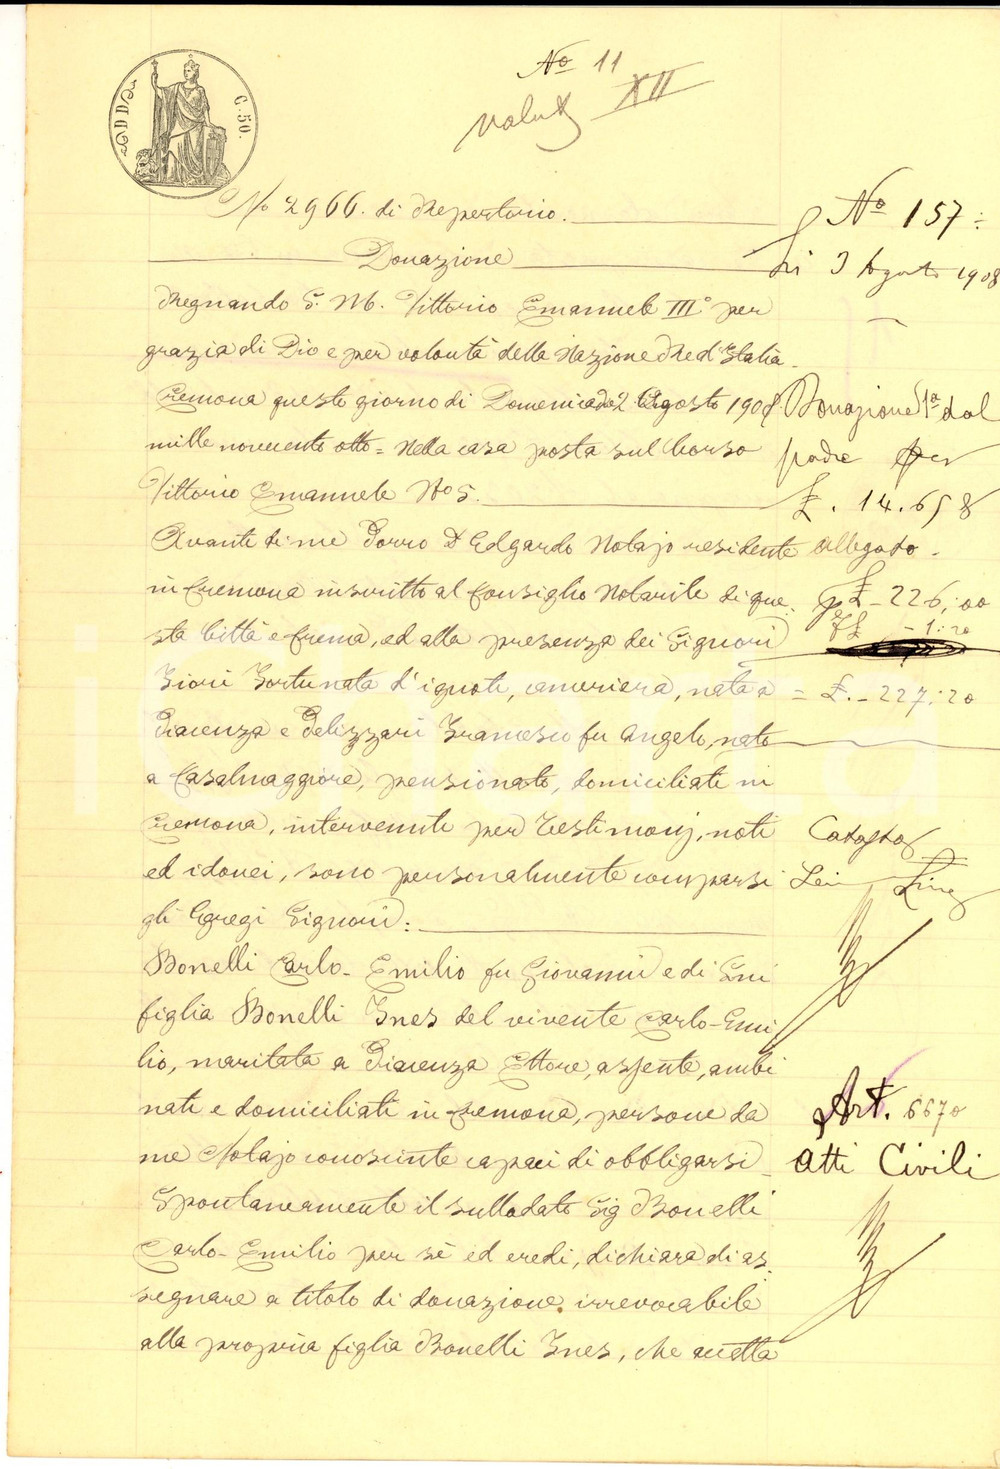 No 11
XII
C. 50.
No 2966. di Repertorio.
Donazione
Regnando S. M. Vittorio Emanuele III° per
grazia di Dio e per volontà della Nazione Re d'Italia.
Cremona questo giorno di Domenica 2 Agosto 1908.
mille novecento otto = Nella casa posta sul Corso
Vittorio Emanuele No 5.
Avanti di me Porro Dr Edgardo Notajo residente
in Cremona inscritto al Consiglio Notarile di que-
sta Città e Crema, ed alla presenza dei Signori
Fiori Fortunata d'ignoti, cameriera, nata a
Piacenza e Pelizzari Francesco fu Angelo, nato
a Casalmaggiore, pensionato, domiciliati in
Cremona, intervenuti per testimonj, noti
ed idonei, sono personalmente comparsi
gli Egregi Signori:
Bonelli Carlo-Emilio fu Giovanni e di lui
figlia Bonelli Ines del vivente Carlo-Emi
lio, maritata a Piacenza Ettore, assente, ambi
nati e domiciliati in Cremona, persone da
me Notajo conosciute capaci di obbligarsi
Spontaneamente il sullodato Sig Bonelli
Carlo-Emilio per sè ed eredi, dichiara di as-
segnare a titolo di donazione irrevocabile
alla propria figlia Bonelli Ines, che accetta
No 157=
Li 3 Agosto 1908
Donazione 1a dal
padre per
£. 14.658
allegato.
£ - 226,00
- 1:20
= £. - 227:20
Catasto
Art. 6670
Atti Civili